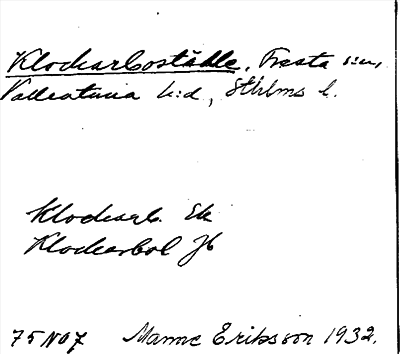 Klockarboställe, Fresta s:n,
Vallentuna h:d, Sthlms l.
Klockarb. Ek
Klockarbol Jb
75 NO 7 Manne Eriksson 1932.